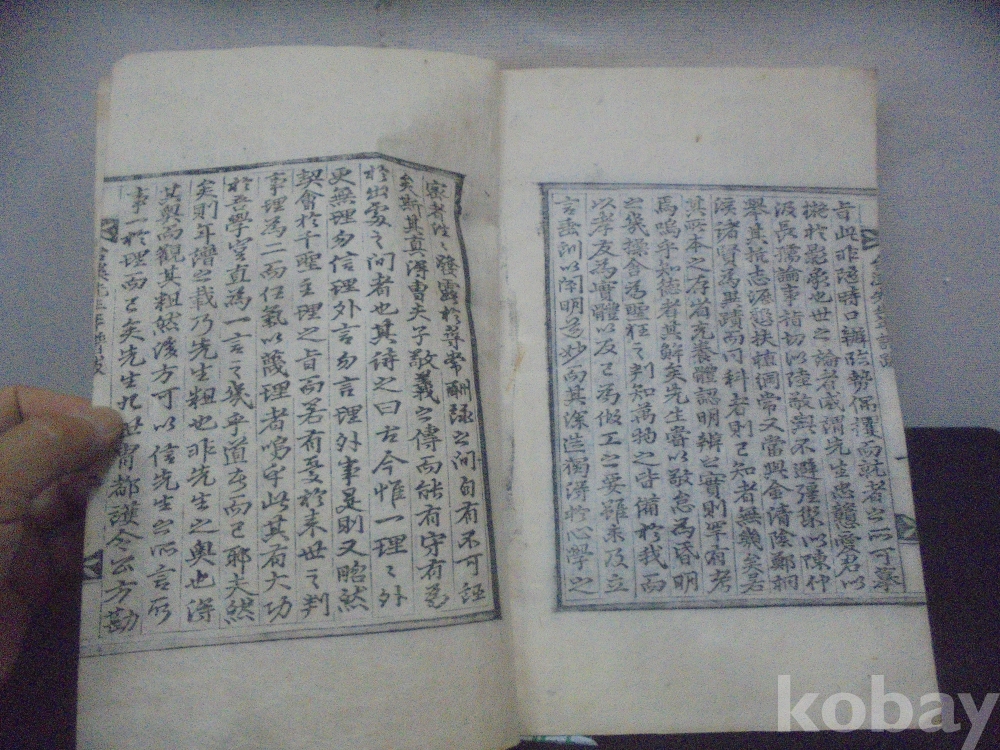 旨此非隨時口辦臨勢偶擢而就者之所可摹
擬於影象也世之論者咸謂先生忠戇愛君以
汲長孺論事剴切以陸敬輿不避彊禦以陳仲
舉其抗志涯愸扶植綱常又當與金清陰鄭桐
溪諸賢爲無蹟而同科者則已知者無幾矣若
其所本之存省充養體認明辨之實則罕有考
焉嗚乎知德者其解矣先生嘗以敬怠爲昏明
之幾操舍爲聖狂之判知萬物之皆備於我而
以孝友爲實體以反己爲做工之要雖未及立
言垂訓以闡明至妙而其深造獨得於心學之
密者往之發露於尋常酬酢之間自有不可誣
矣斯其真得曹夫子敬義之傳而能有守有爲
於出處之間者也其詩之曰古今惟一理之外
更無理勿信理外言勿言理外事是則又昭然
契會於千聖主理之旨而若有憂於來世之判
事理爲二而任氣以蔑理者嗚乎此其有大功
於吾學室直爲一言之幾乎道在而已耶夫然
矣則年譜之載乃先生粗也非先生之奧也得
其奧而觀其粗然後方可以信先生之所言所
事一於理而已矣先生九世胄都護令公方勘